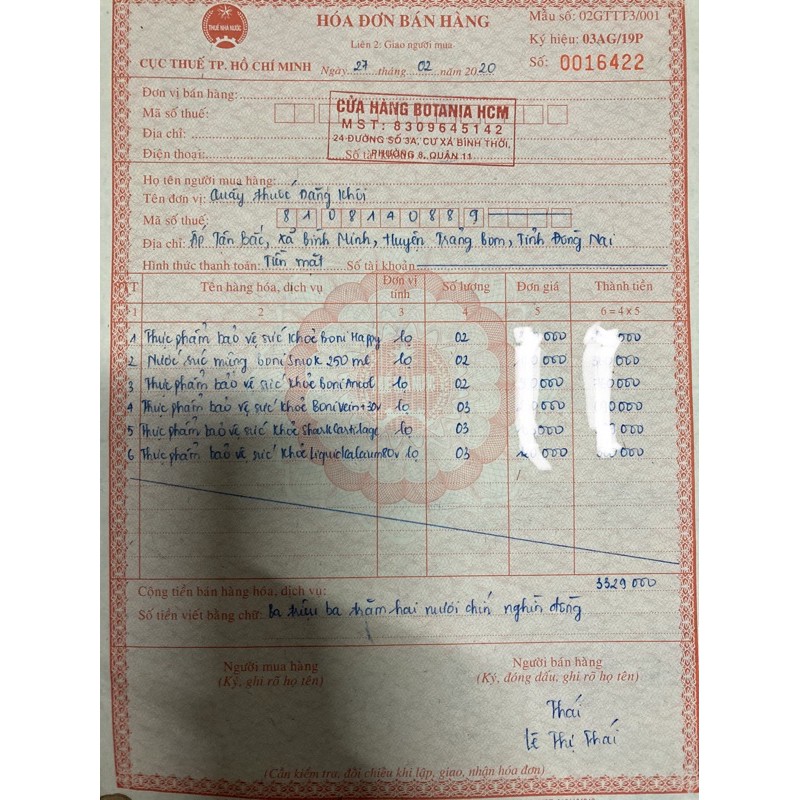 HÓA ĐƠN BÁN HÀNG
Mẫu số: 02GTTT3/001
THUẾ NHÀ NƯỚC
Liên 2: Giao người mua
Ký hiệu: 03AG/19P
CỤC THUẾ TP. HỒ CHÍ MINH
Ngày 27 tháng 02 năm 2020
Số: 0016422
Đơn vị bán hàng:
Mã số thuế:
Địa chỉ:
Điện thoại: Số tài khoản:
CỬA HÀNG BOTANIA HCM
MST: 8309645142
24 ĐƯỜNG SỐ 3A, CƯ XÁ BÌNH THỚI,
PHƯỜNG 8, QUẬN 11
Họ tên người mua hàng:
Tên đơn vị: Quầy thuốc Đăng Khôi
Mã số thuế: 8108140889
Địa chỉ: Ấp Tân Bắc, Xã Bình Minh, Huyện Trảng Bom, Tỉnh Đồng Nai
Hình thức thanh toán: Tiền mặt Số tài khoản
TT Tên hàng hóa, dịch vụ Đơn vị tính Số lượng Đơn giá Thành tiền
1 2 3 4 5 6 = 4 x 5
1 Thực phẩm bảo vệ sức khỏe Boni Happy lọ 02 000 000
2 Nước súc miệng boni Smok 250 ml lọ 02 000 000
3 Thực phẩm bảo vệ sức khỏe Boni Ancol lọ 02 000 000
4 Thực phẩm bảo vệ sức khỏe Boni Vein+30v lọ 03 000 000
5 Thực phẩm bảo vệ sức khỏe Shark Cartilage lọ 03 000 000
6 Thực phẩm bảo vệ sức khỏe Liquid Calcium 80v lọ 03 000 000
Cộng tiền bán hàng hóa, dịch vụ: 3329 000
Số tiền viết bằng chữ: Ba triệu ba trăm hai mươi chín nghìn đồng
Người mua hàng Người bán hàng
(Ký, ghi rõ họ tên) (Ký, đóng dấu, ghi rõ họ tên)
Thái
Lê Thị Thái
(Cần kiểm tra, đối chiếu khi lập, giao, nhận hóa đơn)